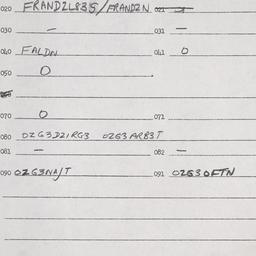 020 FRANDZL835/FRANDZN 021 -
030 - 031 -
040 FALDN 041 0
050 0
070 0 071
080 OZG3D21RG3 OZG3AR83T
081 - 082 -
090 OZG3NA/T 091 OZG3OFTN